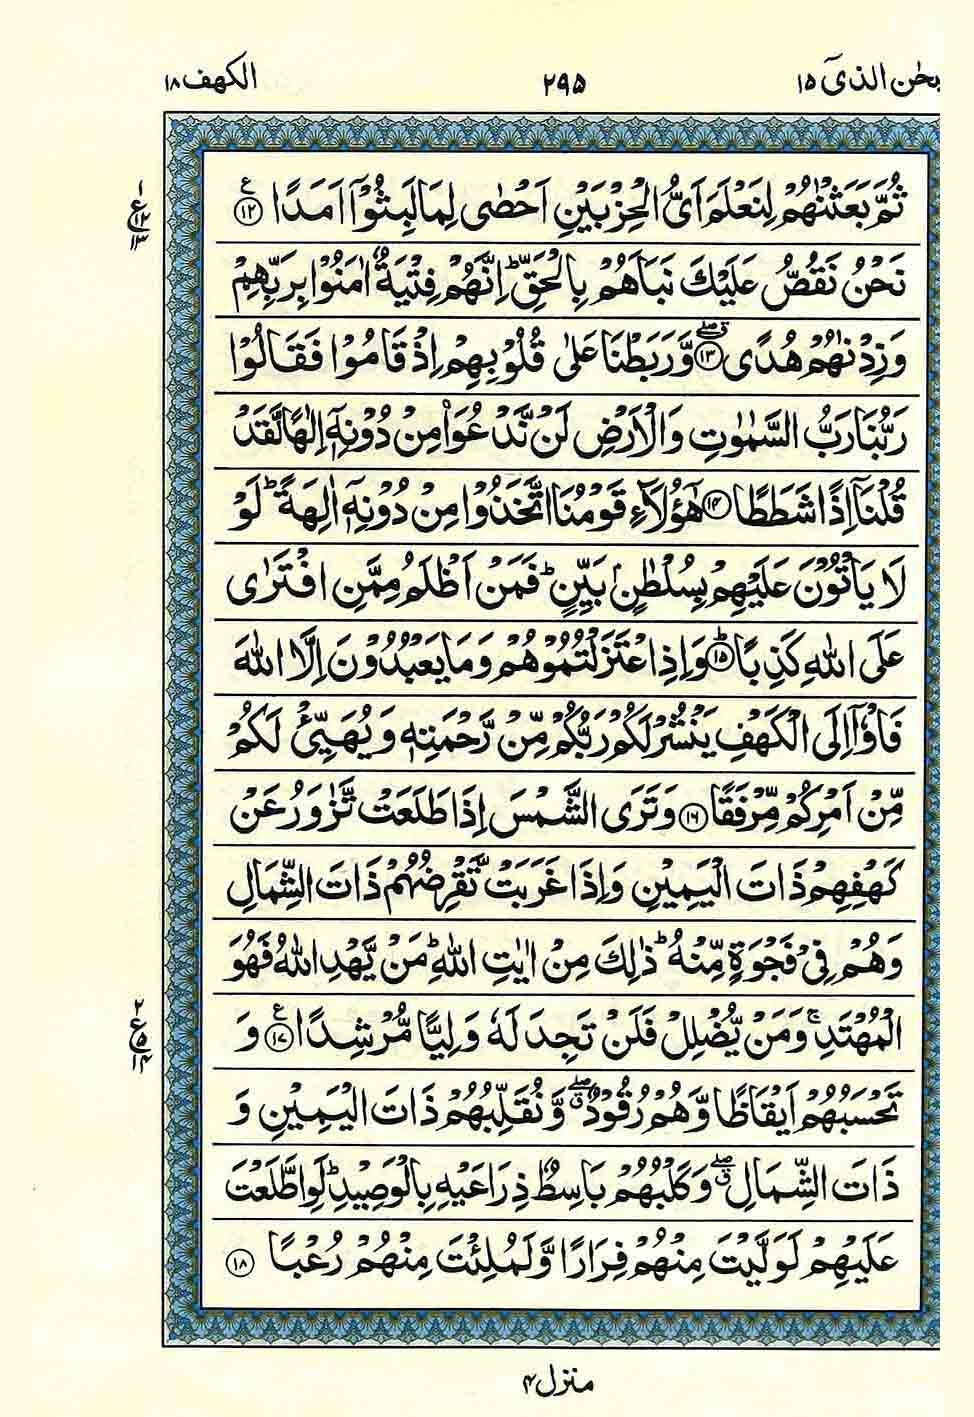 سبحٰن الذیٓ ۱۵ ۲۹۵ الکهف ۱۸
ثُمَّ بَعَثْنٰهُمْ لِنَعْلَمَ اَیُّ الْحِزْبَیْنِ اَحْصٰی لِمَا لَبِثُوْۤا اَمَدًا ﴿۱۲﴾ ع
۱ ع ۱۲ ۱۳
نَحْنُ نَقُصُّ عَلَیْكَ نَبَاَهُمْ بِالْحَقِّ ؕ اِنَّهُمْ فِتْیَةٌ اٰمَنُوْا بِرَبِّهِمْ
وَزِدْنٰهُمْ هُدًی ﴿۱۳﴾ۖق وَّرَبَطْنَا عَلٰی قُلُوْبِهِمْ اِذْ قَامُوْا فَقَالُوْا
رَبُّنَا رَبُّ السَّمٰوٰتِ وَالْاَرْضِ لَنْ نَّدْعُوَا۠ مِنْ دُوْنِهٖۤ اِلٰهًا لَّقَدْ
قُلْنَاۤ اِذًا شَطَطًا ﴿۱۴﴾ هٰۤؤُلَآءِ قَوْمُنَا اتَّخَذُوْا مِنْ دُوْنِهٖۤ اٰلِهَةً ؕ لَوْ
لَا یَاْتُوْنَ عَلَیْهِمْ بِسُلْطٰنٍۭ بَیِّنٍ ؕ فَمَنْ اَظْلَمُ مِمَّنِ افْتَرٰی
عَلَی اللّٰهِ كَذِبًا ﴿۱۵﴾ؕ وَاِذِ اعْتَزَلْتُمُوْهُمْ وَمَا یَعْبُدُوْنَ اِلَّا اللّٰهَ
فَاْوٗۤا اِلَی الْكَهْفِ یَنْشُرْ لَكُمْ رَبُّكُمْ مِّنْ رَّحْمَتِهٖ وَیُهَیِّئْ لَكُمْ
مِّنْ اَمْرِكُمْ مِّرْفَقًا ﴿۱۶﴾ وَتَرَی الشَّمْسَ اِذَا طَلَعَتْ تَّزٰوَرُ عَنْ
كَهْفِهِمْ ذَاتَ الْیَمِیْنِ وَاِذَا غَرَبَتْ تَّقْرِضُهُمْ ذَاتَ الشِّمَالِ
وَهُمْ فِیْ فَجْوَةٍ مِّنْهُ ؕ ذٰلِكَ مِنْ اٰیٰتِ اللّٰهِ ؕ مَنْ یَّهْدِ اللّٰهُ فَهُوَ
الْمُهْتَدِ ۚ وَمَنْ یُّضْلِلْ فَلَنْ تَجِدَ لَهٗ وَلِیًّا مُّرْشِدًا ﴿۱۷﴾ ع وَ
۲ ع ۵ ۱۴
تَحْسَبُهُمْ اَیْقَاظًا وَّهُمْ رُقُوْدٌ ۖق وَّنُقَلِّبُهُمْ ذَاتَ الْیَمِیْنِ وَ
ذَاتَ الشِّمَالِ ۖق وَكَلْبُهُمْ بَاسِطٌ ذِرَاعَیْهِ بِالْوَصِیْدِ ؕ لَوِ اطَّلَعْتَ
عَلَیْهِمْ لَوَلَّیْتَ مِنْهُمْ فِرَارًا وَّلَمُلِئْتَ مِنْهُمْ رُعْبًا ﴿۱۸﴾
منزل ۴